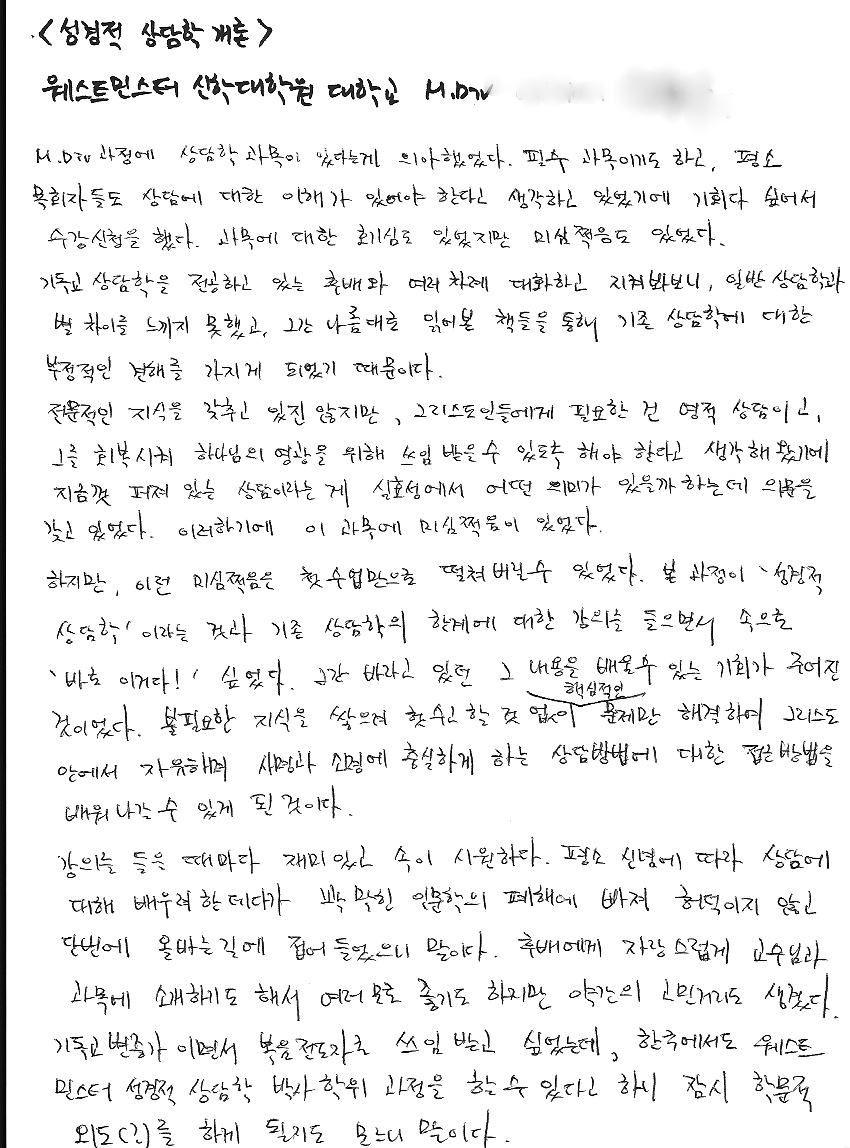 <성경적 상담학 개론>
웨스트민스터 신학대학원 대학교 M.Div
M.Div 과정에 상담학 과목이 있다는게 의아했었다. 필수 과목이기도 하고, 평소
목회자들도 상담에 대한 이해가 있어야 한다고 생각하고 있었기에 기회다 싶어서
수강신청을 했다. 과목에 대한 호기심도 있었지만 미심쩍음도 있었다.
기독교 상담학을 전공하고 있는 후배와 여러 차례 대화하고 지켜봐보니, 일반 상담학과
별 차이를 느끼지 못했고, 그간 나름대로 읽어본 책들을 통해 기존 상담학에 대한
부정적인 견해를 가지게 되었기 때문이다.
전문적인 지식을 갖추고 있진 않지만, 그리스도인들에게 필요한 건 영적 상담이고,
그를 회복시켜 하나님의 영광을 위해 쓰임 받을 수 있도록 해야 한다고 생각해 왔기에
지금껏 퍼져 있는 상담이라는 게 실효성에서 어떤 의미가 있을까 하는데 의문을
갖고 있었다. 이러하기에 이 과목에 미심쩍음이 있었다.
하지만, 이런 미심쩍음은 첫 수업만으로 떨쳐버릴 수 있었다. 본 과정이 '성경적
상담학' 이라는 것과 기존 상담학의 한계에 대한 강의를 들으면서 속으로
'바로 이거다!' 싶었다. 그간 바라고 있던 그 내용을 배울 수 있는 기회가 주어진
핵심적인
것이었다. 불필요한 지식을 쌓으려 헛수고 할 것 없이 문제만 해결하여 그리스도
안에서 자유해져 사명과 소명에 충실하게 하는 상담방법에 대한 접근방법을
배워 나갈 수 있게 된 것이다.
강의를 들을 때마다 재미있고 속이 시원하다. 평소 신념에 따라 상담에
대해 배우려 한데다가 꽉 막힌 인문학의 폐해에 빠져 허덕이지 않고
단번에 올바른 길에 접어 들었으니 말이다. 후배에게 자랑스럽게 교수님과
과목에 소개하기도 해서 여러모로 즐기도 하지만 약간의 고민거리도 생겼다.
기독교 변증가 이면서 복음전도자로 쓰임 받고 싶었는데, 한국에서도 웨스트
민스터 성경적 상담학 박사 학위 과정을 할 수 있다고 하니 잠시 학문적
외도(?)를 하게 될지도 모르니 말이다.